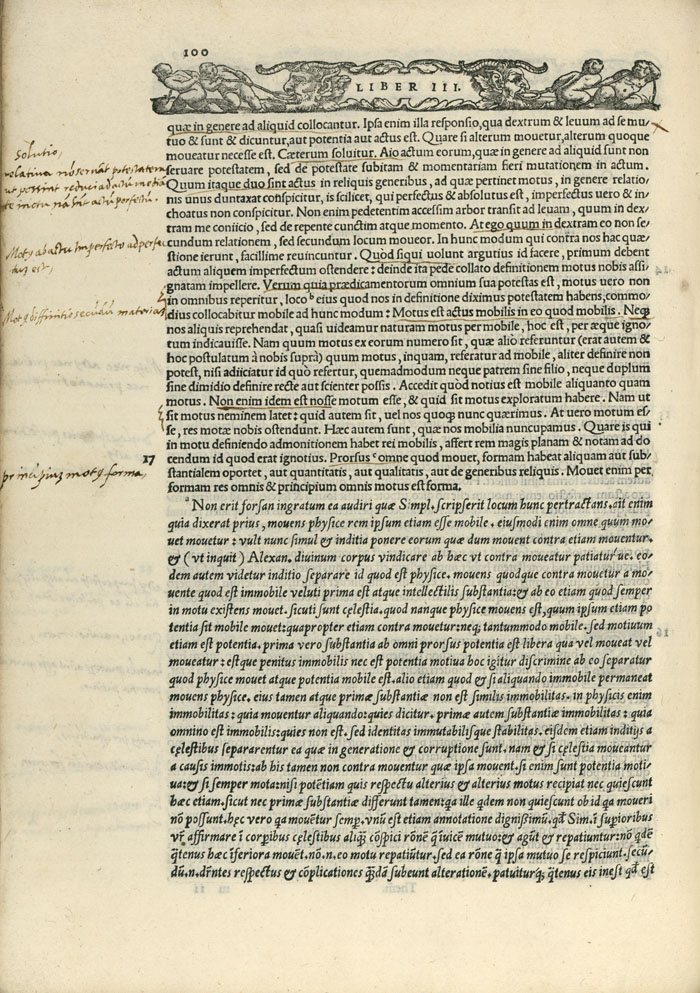 100
LIBER III.
quæ in genere ad aliquid collocantur. Ipsa enim illa responsio, qua dextrum & leuum ad se mu/
tuo & sunt & dicuntur, aut potentia aut actus est. Quare si alterum mouetur, alterum quoque
moueatur necesse est. Cæterum soluitur. Aio actum eorum, quæ in genere ad aliquid sunt non
seruare potestatem, sed de potestate subitam & momentariam fieri mutationem in actum.
Quum itaque duo sint actus in reliquis generibus, ad quæ pertinet motus, in genere relatio/
nis unus duntaxat conspicitur, is scilicet, qui perfectus & absolutus est, imperfectus uero & in/
choatus non conspicitur. Non enim pedetentim accessim arbor transit ad leuam, quum in dex/
tram me coniicio, sed de repente cunctim atque momento. Atego quum in dextram eo non se/
cundum relationem, sed secundum locum moueor. In hunc modum qui contra nos hac quæ/
stione ierunt, facillime reuincuntur. Quòd siqui uolunt argutius id facere, primum debent
actum aliquem imperfectum ostendere: deinde ita pede collato definitionem motus nobis assi/
gnatam impellere. Verum quia prædicamentorum omnium sua potestas est, motus uero non
in omnibus reperitur, loco b eius quod nos in definitione diximus potestatem habens, commo/
dius collocabitur mobile ad hunc modum: Motus est actus mobilis in eo quod mobile. Neqꝫ
nos aliquis reprehendat, quasi uideamur naturam motus per mobile, hoc est, per æque igno/
tum indicauisse. Nam quum motus ex eorum numero sit, quæ alio referuntur (erat autem &
hoc postulatum à nobis suprà) quum motus, inquam, referatur ad mobile, aliter definire non
potest, nisi adiiciatur id quò refertur, quemadmodum neque patrem sine filio, neque duplum
sine dimidio definire recte aut scienter possis. Accedit quòd notius est mobile aliquanto quam
motus. Non enim idem est nosse motum esse, & quid sit motus exploratum habere. Nam ut
sit motus neminem latet: quid autem sit, uel nos quoqꝫ nunc quærimus. At uero motum es/
se, res motæ nobis ostendunt. Hæc autem sunt, quæ nos mobilia nuncupamus. Quare is qui
in motu definiendo admonitionem habet rei mobilis, affert rem magis planam & notam ad do/
17
cendum id quod erat ignotius. Prorsus c omne quod mouet, formam habeat aliquam aut sub/
stantialem oportet, aut quantitatis, aut qualitatis, aut de generibus reliquis. Mouet enim per
formam res omnis & principium omnis motus est forma.
a Non erit forsan ingratum ea audiri quæ Simpl. scripserit locum hunc pertractans. ait enim
quia dixerat prius, mouens physice rem ipsum etiam esse mobile. eiusmodi enim omne quum mo/
uet mouetur: vult nunc simul & inditia ponere eorum quæ dum mouent contra etiam mouentur.
& (vt inquit) Alexan. diuinum corpus vindicare ab hæc vt contra moueatur patiatur ue. eo/
dem autem videtur inditio separare id quod est physice. mouens quodque contra mouetur a mo/
uente quod est immobile veluti prima est atque intellectilis substantia: & ab eo etiam quod semper
in motu existens mouet. sicuti sunt cęlestia. quod nanque physice mouens est, quum ipsum etiam po
tentia sit mobile mouet: quapropter etiam contra mouetur: neqꝫ tantummodo mobile. sed motiuum
etiam est potentia. prima vero substantia ab omni prorsus potentia est libera qua vel moueat vel
moueatur: estque penitus immobilis nec est potentia motiua hoc igitur discrimine ab eo separatur
quod physice mouet atque potentia mobile est. alio etiam quod & si aliquando immobile permaneat
mouens physice. eius tamen atque primæ substantiæ non est similis immobilitas. in physicis enim
immobilitas: quia mouentur aliquando: quies dicitur. primæ autem substantiæ immobilitas: quia
omnino est immobilis: quies non est. sed identitas immutabilisque stabilitas. eisdem etiam inditijs a
cęlestibus separarentur ea quæ in generatione & corruptione sunt. nam & si cęlestia moueantur
a causis immotis: ab his tamen non contra mouentur quæ ipsa mouent. si enim sunt potentia moti/
ua: & si semper mota: nisi potētiam quis respectu alterius & alterius motus recipiat nec quiescunt
hæc etiam. sicut nec primæ substantiæ differunt tamen: qa ille qdem non quiescunt ob id qa moueri
nō possunt. hęc vero qa mouētur semp. vnū est etiam annotatione dignißimū. qd Sim. ī superioribus